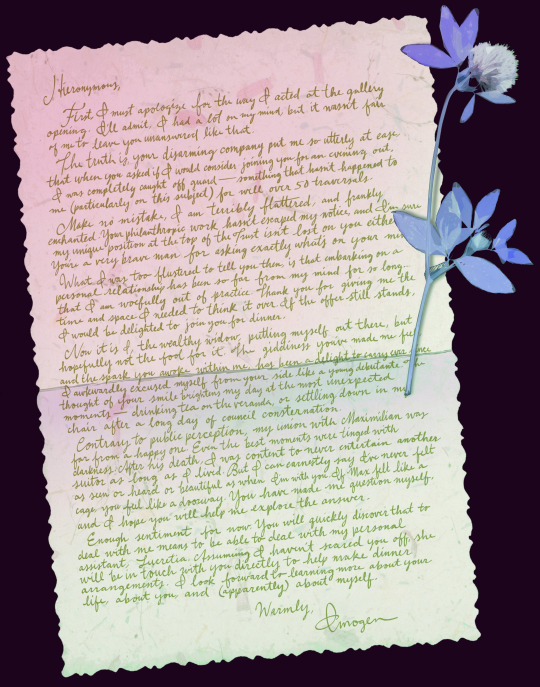 Hieronymous,
First I must apologize for the way I acted at the gallery
opening. I'll admit, I had a lot on my mind, but it wasn't fair
of me to leave you unanswered like that.
The truth is, your disarming company put me so utterly at ease
that when you asked if I would consider joining you for an evening out,
I was completely caught off guard — something that hasn't happened to
me (particularly on this subject) for well over 50 traversals.
Make no mistake, I am terribly flattered, and frankly
enchanted. Your philanthropic work hasn't escaped my notice, and I'm sure
my unique position at the top of the Trust isn't lost on you either.
You're a very brave man for asking exactly what's on your mind.
What I was too flustered to tell you then, is that embarking on a
personal relationship has been so far from my mind for so long
that I am woefully out of practice. Thank you for giving me the
time and space I needed to think it over. If the offer still stands,
I would be delighted to join you for dinner.
Now it is I, the wealthy widow, putting myself out there, but
hopefully not the fool for it. The giddiness you've made me feel
and the spark you awoke within me has been a delight to carry ever since
I awkwardly excused myself from your side like a young debutante. The
thought of your smile brightens my day at the most unexpected
moments — drinking tea on the veranda, or settling down in my
chair after a long day of council consternation.
Contrary to public perception, my union with Maximilian was
far from a happy one. Even the best moments were tinged with
darkness. After his death, I was content to never entertain another
suitor as long as I lived. But I can earnestly say I've never felt
as seen or heard or beautiful as when I'm with you. If Max felt like a
cage, you feel like a doorway. You have made me question myself,
and I hope you will help me explore the answer.
Enough sentiment, for now. You will quickly discover that to
deal with me means to be able to deal with my personal
assistant, Lucretia. Assuming I haven't scared you off, she
will be in touch with you directly to help make dinner
arrangements. I look forward to learning more about your
life, about you, and (apparently) about myself.
Warmly,
Imogen